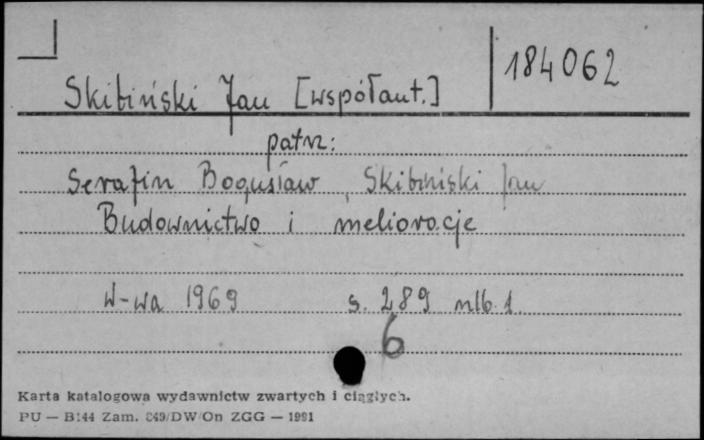 184062
Skibiński Jan [współaut.]
patrz:
Serafin Bogusław, Skibiński Jan
Budownictwo i melioracje
W-wa 1969 s. 289 nlb. 1
6
Karta katalogowa wydawnictw zwartych i ciągłych.
PU — B144 Zam. 849/DW/On ZGG — 1981